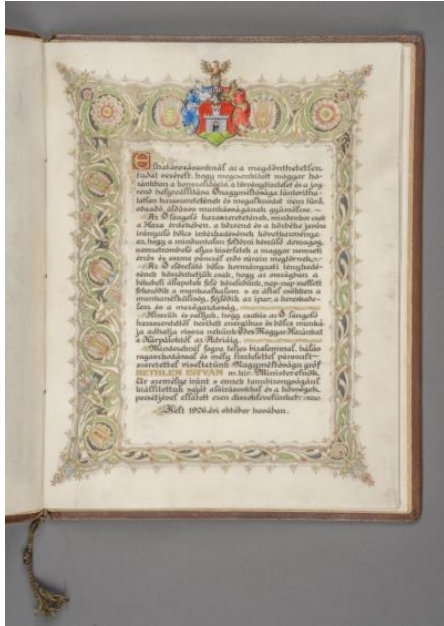 Elhatározásunknál az a megdönthetetlen
tudat vezérelt, hogy megcsonkított magyar ha-
zánkban a konszolidáció, a törvénytisztelet és a jog-
rend helyreállítása Őnagyméltósága tántorítha-
tatlan hazaszeretetének és megalkuvást nem tűrő,
odaadó, áldásos munkásságának gyümölcse.
Az Ő lángoló hazaszeretetének, mindenkor csak
a Haza érdekében, a közrend és a közbéke javára
irányuló bölcs intézkedésének következménye
az, hogy a minduntalan feltörni készülő demagóg,
nemzetromboló aljas kísérletek a magyar nemzeti
érzés és eszme páncél erős várain megtörnek.
Az Ő előrelátó bölcs kormányzati tényked-
sének köszönhetjük csak, hogy az országban a
békebeli állapotok felé közeledünk, nap-nap mellett
fokozódik a munkaalkalom s ez által csökken a
munkanélküliség, fejlődik az ipar, a kereskede-
lem és a mezőgazdaság.
Hisszük és valljuk, hogy csakis az Ő lángoló
hazaszeretettől hevített energikus és bölcs munká-
ja adhatja vissza nekünk Édes Magyar Hazánkat
a Kárpátoktól az Adriáig.
Mindezeknél fogva teljes bizalommal, hálás
ragaszkodással és mély tisztelettel párosult
szeretettel viseltetünk Nagyméltóságú gróf
BETHLEN ISTVÁN m. kir. Miniszterelnök
Úr személye iránt s ennek tanubizonyságául
kiállítottuk saját aláírásunkkal és a községek
pecsétjével ellátott ezen díszoklevelünket.
Kelt 1926. évi október havában.